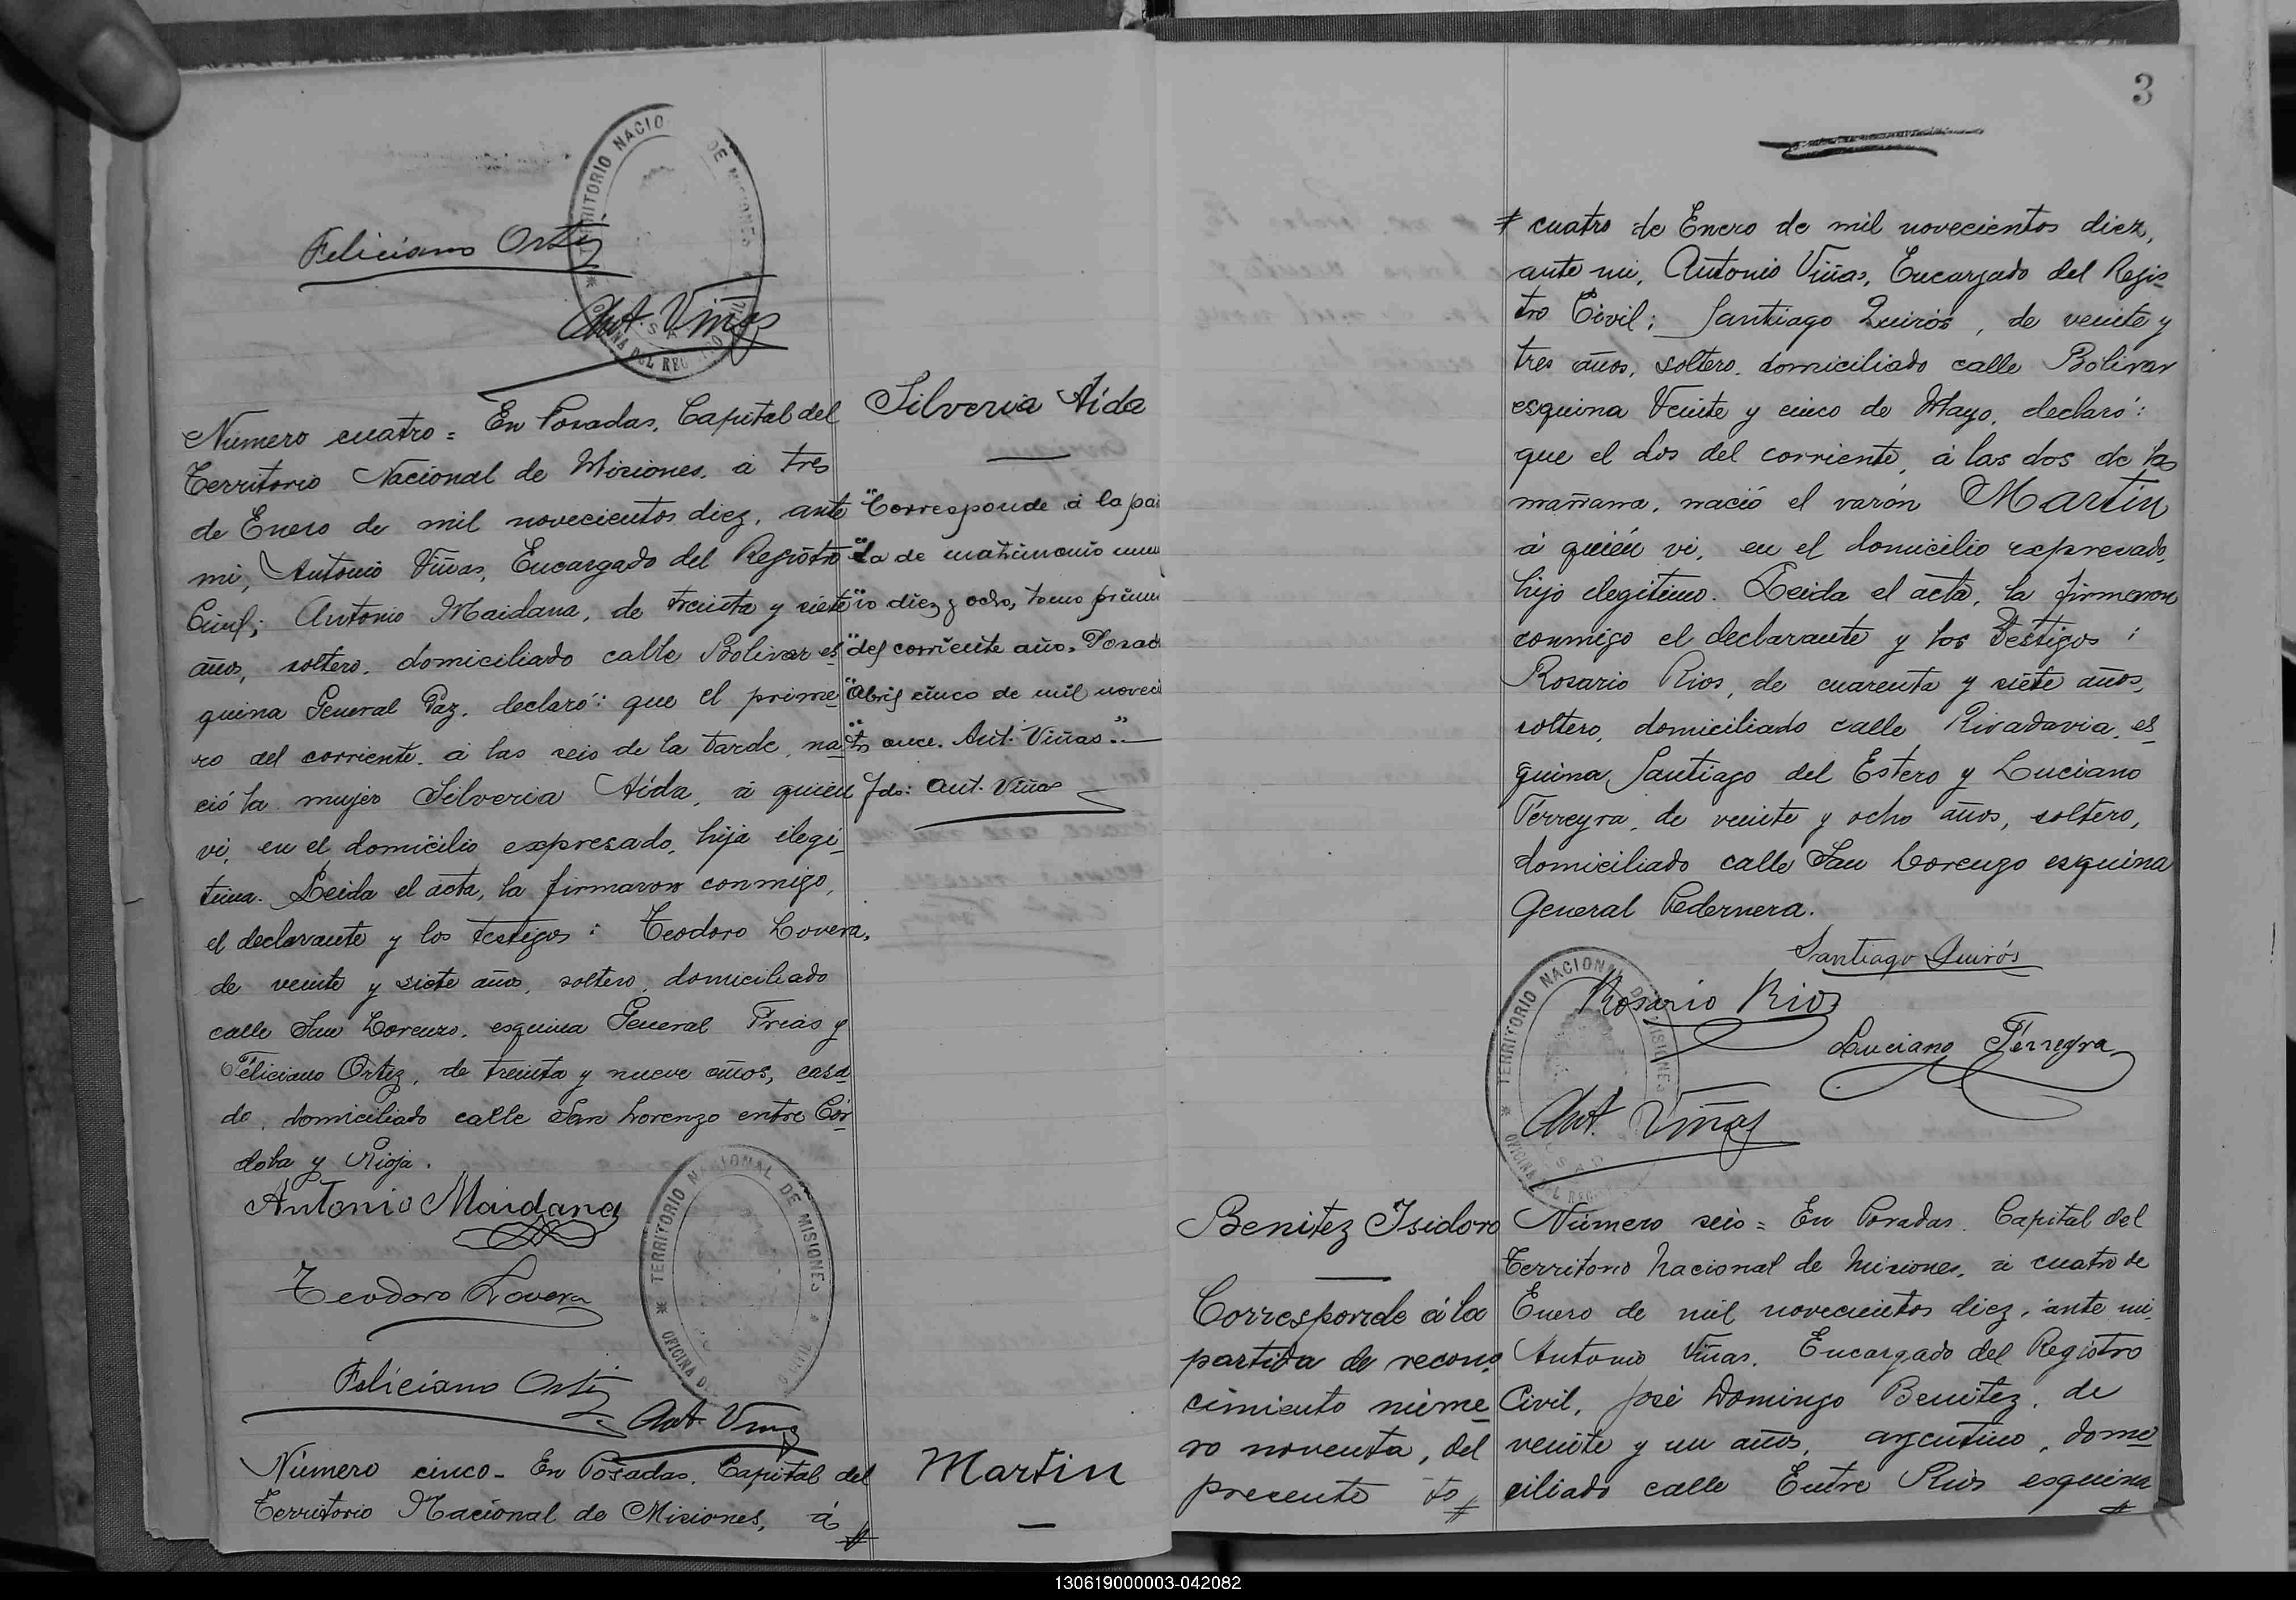 Feliciano Ortiz
TERRITORIO NACIO DE MISIONES
Ant. Viñas
Número cuatro = En Posadas, Capital del
Territorio Nacional de Misiones, á tres
de Enero de mil novecientos diez, ante
mi, Antonio Viñas, Encargado del Registro
Civil; Antonio Maidana, de treinta y siete
años, soltero, domiciliado calle Bolivar es-
quina General Paz, declaró: que el prime-
ro del corriente, á las seis de la tarde, na-
ció la mujer Silveria Aída, á quien
vi, en el domicilio expresado, hija ilegi-
tima. Leida el acta, la firmaron conmigo,
el declarante y los testigos: Teodoro Lovera,
de veinte y siete años, soltero, domiciliado
calle San Lorenzo, esquina General Frias y
Feliciano Ortiz, de treinta y nueve años, casa-
do, domiciliado calle San Lorenzo entre Cór-
doba y Rioja.
Antonio Maidana
Teodoro Lovera
Feliciano Ortiz
Ant. Viñas
TERRITORIO NACIONAL DE MISIONES
Número cinco - En Posadas, Capital del
Territorio Nacional de Misiones, á #
Silveria Aida
"Corresponde á la par
"da de matrimonio nume
"ro diez y ocho, tomo prime
"del corriente año. Posad
"Abril cinco de mil noveci
"tos once. Ant. Viñas".
fdo: Ant. Viñas
Martin
3
# cuatro de Enero de mil novecientos diez,
ante mi, Antonio Viñas, Encargado del Regis-
tro Civil; Santiago Quirós, de veinte y
tres años, soltero, domiciliado calle Bolivar
esquina Veinte y cinco de Mayo, declaró:
que el dos del corriente, á las dos de la
mañana, nació el varón Martin
á quién vi, en el domicilio expresado,
hijo ilegítimo. Leida el acta, la firmaron
conmigo el declarante y los testigos:
Rosario Rios, de cuarenta y siete años,
soltero, domiciliado calle Rivadavia, es-
quina Santiago del Estero y Luciano
Ferreyra, de veinte y ocho años, soltero,
domiciliado calle San Lorenzo esquina
General Pedernera.
Santiago Quirós
Rosario Rios
Luciano Ferreyra
Ant. Viñas
TERRITORIO NACIONAL DE MISIONES
Benitez Isidoro
Corresponde á la
partida de recono-
cimiento núme-
ro noventa, del
presente to #
Número seis = En Posadas, Capital del
Territorio Nacional de Misiones, á cuatro de
Enero de mil novecientos diez, ante mi,
Antonio Viñas, Encargado del Registro
Civil, José Domingo Benitez, de
veinte y un años, argentino, domi-
ciliado calle Entre Rios esquina
#
130619000003-042082